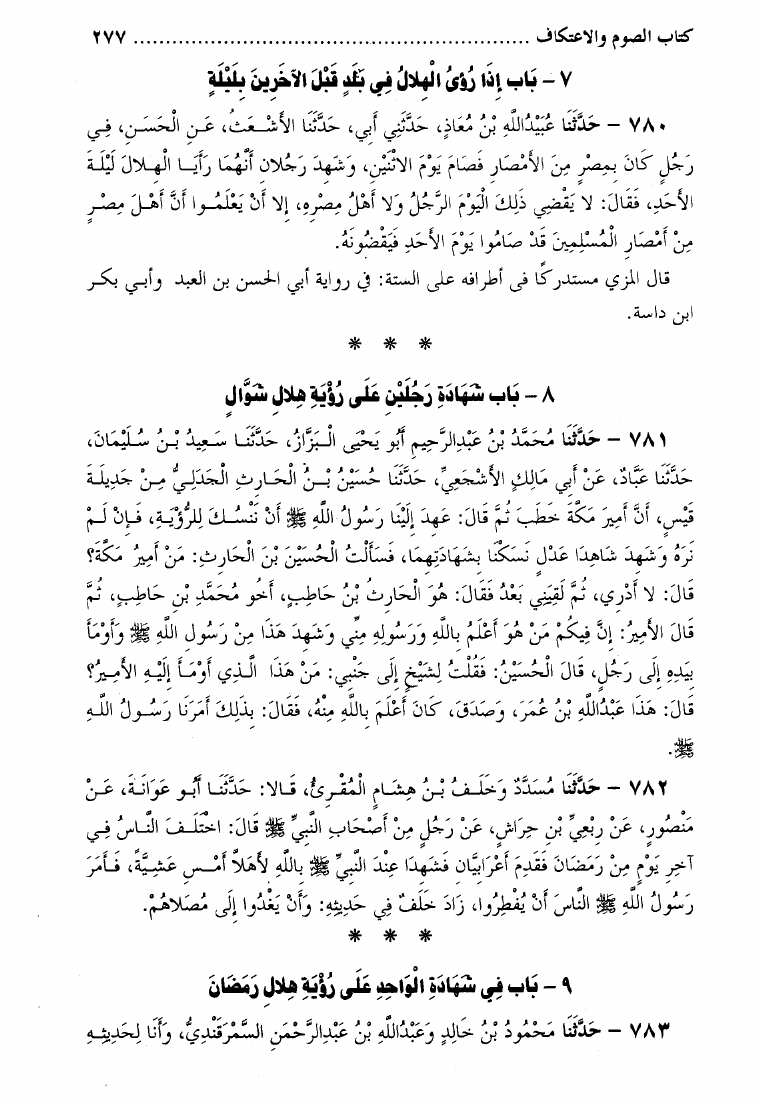 كتاب الصوم والاعتكاف ........................................................ ٢٧٧
٧ – بَاب إِذَا رُؤِىَ الْهِلالُ فِي بَلَدٍ قَبْلَ الآخَرِينَ بِلَيْلَةٍ
٧٨٠ – حَدَّثَنَا عُبَيْدُاللَّهِ بْنُ مُعَاذٍ، حَدَّثَنِي أَبِي، حَدَّثَنَا الأَشْعَثُ، عَنِ الْحَسَنِ، فِي
رَجُلٍ كَانَ بِمِصْرٍ مِنَ الأَمْصَارِ فَصَامَ يَوْمَ الاثْنَيْنِ، وَشَهِدَ رَجُلانِ أَنَّهُمَا رَأَيَا الْهِلالَ لَيْلَةَ
الأَحَدِ، فَقَالَ: لا يَقْضِي ذَلِكَ الْيَوْمَ الرَّجُلُ وَلا أَهْلُ مِصْرِهِ، إِلا أَنْ يَعْلَمُوا أَنَّ أَهْلَ مِصْرٍ
مِنْ أَمْصَارِ الْمُسْلِمِينَ قَدْ صَامُوا يَوْمَ الأَحَدِ فَيَقْضُونَهُ.
قال المزي مستدركًا فى أطرافه على الستة: في رواية أبي الحسن بن العبد وأبي بكر
ابن داسة.
* * *
٨ – بَاب شَهَادَةِ رَجُلَيْنِ عَلَى رُؤْيَةِ هِلالِ شَوَّالٍ
٧٨١ – حَدَّثَنَا مُحَمَّدُ بْنُ عَبْدِالرَّحِيمِ أَبُو يَحْيَى الْبَزَّازُ، حَدَّثَنَا سَعِيدُ بْنُ سُلَيْمَانَ،
حَدَّثَنَا عَبَّادٌ، عَنْ أَبِي مَالِكٍ الأَشْجَعِيِّ، حَدَّثَنَا حُسَيْنُ بْنُ الْحَارِثِ الْجَدَلِيُّ مِنْ جَدِيلَةَ
قَيْسٍ، أَنَّ أَمِيرَ مَكَّةَ خَطَبَ ثُمَّ قَالَ: عَهِدَ إِلَيْنَا رَسُولُ اللَّهِ ﷺ أَنْ نَنْسُكَ لِلرُّؤْيَةِ، فَإِنْ لَمْ
نَرَهُ وَشَهِدَ شَاهِدَا عَدْلٍ نَسَكْنَا بِشَهَادَتِهِمَا، فَسَأَلْتُ الْحُسَيْنَ بْنَ الْحَارِثِ: مَنْ أَمِيرُ مَكَّةَ؟
قَالَ: لا أَدْرِي، ثُمَّ لَقِيَنِي بَعْدُ فَقَالَ: هُوَ الْحَارِثُ بْنُ حَاطِبٍ، أَخُو مُحَمَّدِ بْنِ حَاطِبٍ، ثُمَّ
قَالَ الأَمِيرُ: إِنَّ فِيكُمْ مَنْ هُوَ أَعْلَمُ بِاللَّهِ وَرَسُولِهِ مِنِّي وَشَهِدَ هَذَا مِنْ رَسُولِ اللَّهِ ﷺ وَأَوْمَأَ
بِيَدِهِ إِلَى رَجُلٍ، قَالَ الْحُسَيْنُ: فَقُلْتُ لِشَيْخٍ إِلَى جَنْبِي: مَنْ هَذَا الَّذِي أَوْمَأَ إِلَيْهِ الأَمِيرُ؟
قَالَ: هَذَا عَبْدُاللَّهِ بْنُ عُمَرَ، وَصَدَقَ، كَانَ أَعْلَمَ بِاللَّهِ مِنْهُ، فَقَالَ: بِذَلِكَ أَمَرَنَا رَسُولُ اللَّهِ
ﷺ.
٧٨٢ – حَدَّثَنَا مُسَدَّدٌ وَخَلَفُ بْنُ هِشَامٍ الْمُقْرِئُ، قَالا: حَدَّثَنَا أَبُو عَوَانَةَ، عَنْ
مَنْصُورٍ، عَنْ رِبْعِيِّ بْنِ حِرَاشٍ، عَنْ رَجُلٍ مِنْ أَصْحَابِ النَّبِيِّ ﷺ قَالَ: اخْتَلَفَ النَّاسُ فِي
آخِرِ يَوْمٍ مِنْ رَمَضَانَ فَقَدِمَ أَعْرَابِيَّانِ فَشَهِدَا عِنْدَ النَّبِيِّ ﷺ بِاللَّهِ لأَهَلاَّ أَمْسِ عَشِيَّةً، فَأَمَرَ
رَسُولُ اللَّهِ ﷺ النَّاسَ أَنْ يُفْطِرُوا، زَادَ خَلَفٌ فِي حَدِيثِهِ: وَأَنْ يَغْدُوا إِلَى مُصَلاهُمْ.
* * *
٩ – بَاب فِي شَهَادَةِ الْوَاحِدِ عَلَى رُؤْيَةِ هِلالِ رَمَضَانَ
٧٨٣ – حَدَّثَنَا مَحْمُودُ بْنُ خَالِدٍ وَعَبْدُاللَّهِ بْنُ عَبْدِالرَّحْمَنِ السَّمْرَقَنْدِيُّ، وَأَنَا لِحَدِيثِهِ